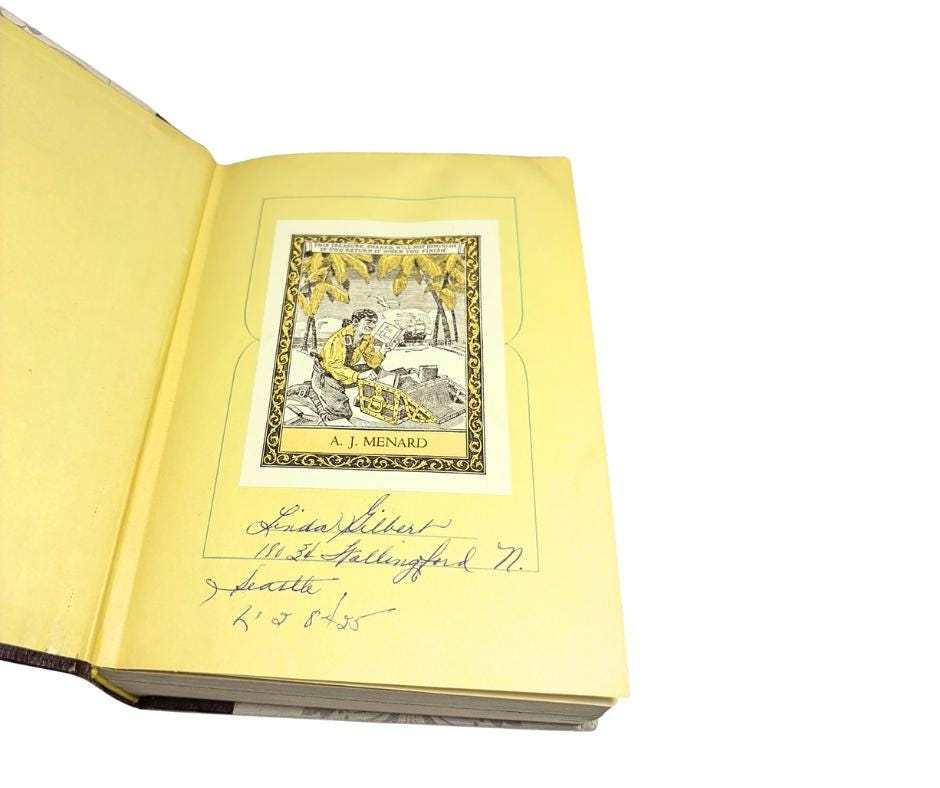 THIS TREASURE, SHARED, WILL NOT DIMINISH
IF YOU RETURN IT WHEN YOU FINISH
A. J. MENARD
Linda Gilbert
Wallingford N.
Seattle